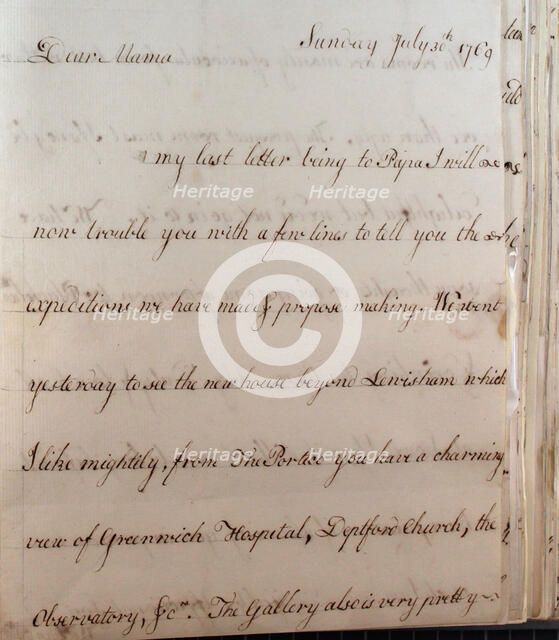 Sunday July 30th 1769
Dear Mama
my last letter being to Papa I will
now trouble you with a few lines to tell you the
expeditions we have made & propose making. We went
yesterday to see the new house beyond Lewisham which
I like mightily, from The Portico you have a charming
view of Greenwich Hospital, Deptford Church, the
Observatory, &c. The Gallery also is very pretty
Heritage
Heritage
Heritage
Heritage
Heritage
Heritage
C